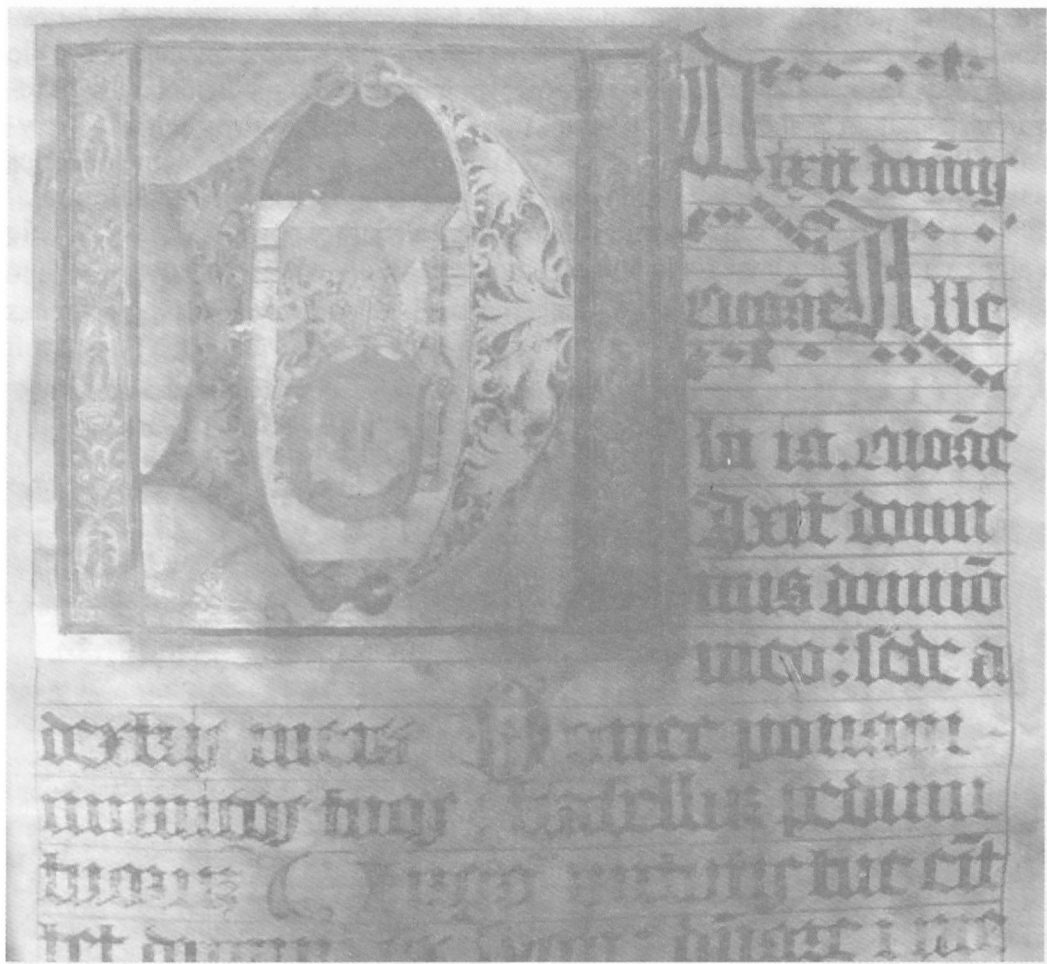 Dixit domīus
euouāe Alle
lu ia. euouāe
Dixit domi
nus domiō
meo: sede a
dextris meis Donec ponam
inimicos tuos scabellum pedum
tuorum Virgā virtutis tue em̄t
tet dominus ex syon: dn̄are ī me